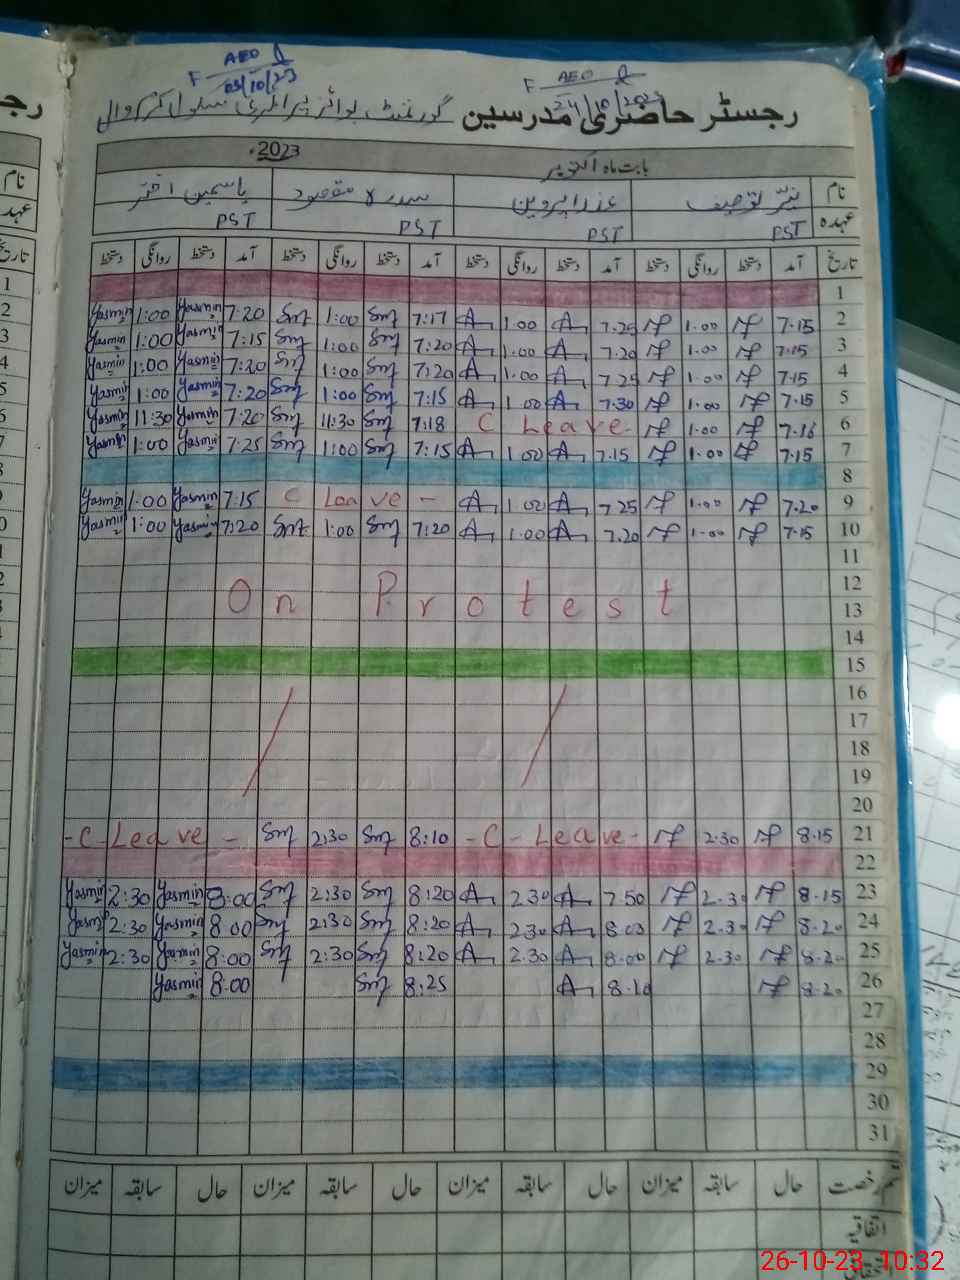 AEO
F 03/10/23
AEO
F 24/10/2023
رجسٹر حاضری مدرسین گورنمنٹ بوائز پرائمری سکول
بابت ماہ اکتوبر 2023
نام نیئر توصیف عذرا پروین سدرہ مقصود یاسمین اختر
عہدہ PST PST PST PST
تاریخ آمد دستخط روانگی دستخط آمد دستخط روانگی دستخط آمد دستخط روانگی دستخط آمد دستخط روانگی دستخط
1
Yasmin 1:00 Yasmin 7:20 Sm 1:00 Sm 7:17 A 1.00 A 7.25 Nf 1.00 Nf 7.15 2
Yasmin 1:00 Yasmin 7:15 Sm 1:00 Sm 7:20 A 1.00 A 7.20 Nf 1.00 Nf 7.15 3
Yasmin 1:00 Yasmin 7:20 Sm 1:00 Sm 7:20 A 1.00 A 7.25 Nf 1.00 Nf 7.15 4
Yasmin 1:00 Yasmin 7:20 Sm 1:00 Sm 7:15 A 1.00 A 7.30 Nf 1.00 Nf 7.15 5
Yasmin 11:30 Yasmin 7:20 Sm 11:30 Sm 7:18 C Leave - Nf 1.00 Nf 7.16 6
Yasmin 1:00 Yasmin 7:25 Sm 1:00 Sm 7:15 A 1.00 A 7.15 Nf 1.00 Nf 7.15 7
8
Yasmin 1:00 Yasmin 7:15 C Leave - A 1.00 A 7.25 Nf 1.00 Nf 7.20 9
Yasmin 1:00 Yasmin 7:20 Sm 1:00 Sm 7:20 A 1.00 A 7.20 Nf 1.00 Nf 7.15 10
11
12
On Protest 13
14
15
16
17
18
19
20
-C-Leave - Sm 2:30 Sm 8:10 -C- Leave- Nf 2.30 Nf 8.15 21
22
Yasmin 2:30 Yasmin 8:00 Sm 2:30 Sm 8:20 A 2.30 A 7.50 Nf 2.30 Nf 8.15 23
Yasmin 2:30 Yasmin 8.00 Sm 2:30 Sm 8:20 A 2.30 A 8.03 Nf 2.30 Nf 8.20 24
Yasmin 2:30 Yasmin 8:00 Sm 2:30 Sm 8:20 A 2.30 A 8.00 Nf 2.30 Nf 8.20 25
Yasmin 8.00 Sm 8:25 A 8.10 Nf 8.20 26
27
28
29
30
31
قسم رخصت حال سابقہ میزان حال سابقہ میزان حال سابقہ میزان حال سابقہ میزان
اتفاقیہ
26-10-23 10:32